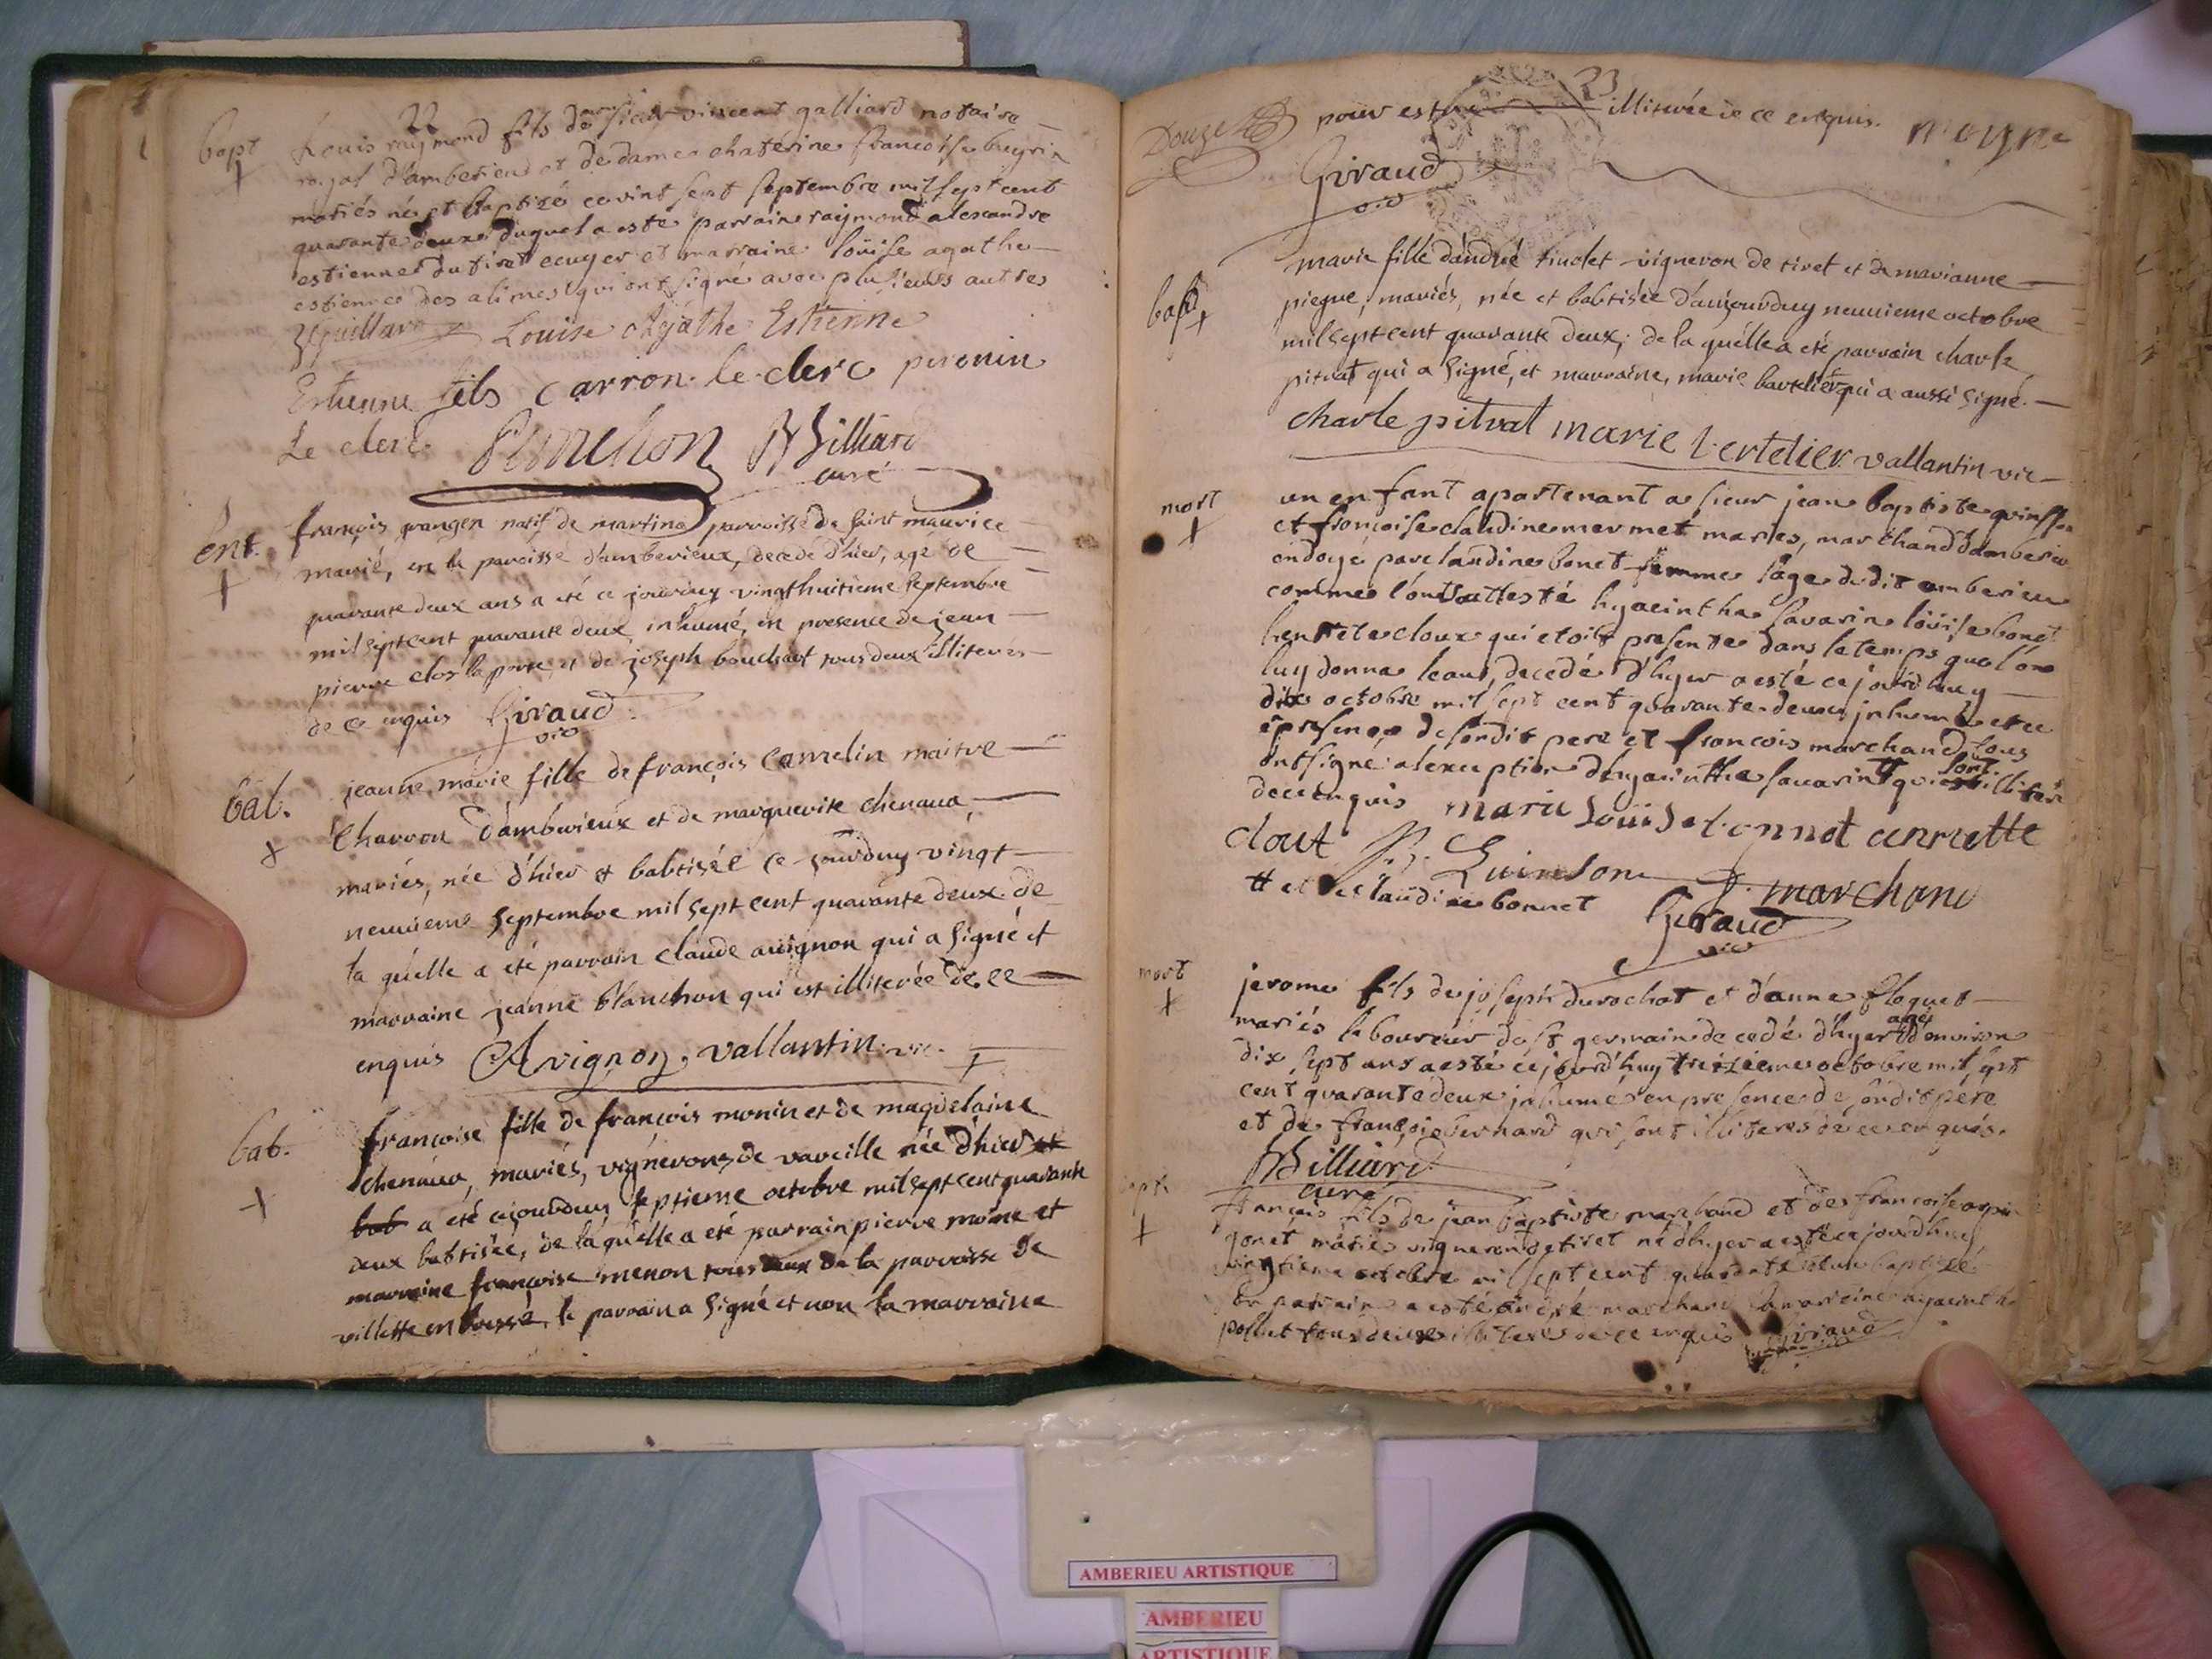 22
bapt Louis raymond fils de sieur vincent galliard notaire
royal d'amberieu et de dame chaterine francoise
mariés né et baptizé ce vint sept septembre mil sept cent
quarante deux duquel a esté parrain raymond alexandre
estienne du tiret ecuyer et marraine louise agathe
estienne des alimes qui ont signé avec plusieurs autres
Louise Agathe Estienne
Estienne fils carron le clerc peronin
Le clerc Billiard
curé
ent. françois grangen natif de martina parroisse de saint maurice
marié, en la paroisse d'amberieux, decede d'hier, agé de
quarante deux ans a été ce jourduy vingthuitieme septembre
mil sept cent quarante deux inhumé, en presence de jean
pierre clos la porte, et de joseph bouchart tous deux illiterés
de ce enquis Giraud
vic
bab. jeanne marie fille de françois camelin maitre
charron d'amberieux et de marguerite chenaua
mariés, née d'hier et babtisée ce jourduy vingt
neuuieme septembre mil sept cent quarante deux de
la quelle a été parrain claude auignon qui a signé et
marraine jeanne blanchon qui est illiterée de ce
enquis Avignon, vallantin vic.
bab. francoise fille de françois monin et de magdelaine
chenaua, mariés, vignerons de vareille née d'hier et
bab a été cejourduy septieme octobre mil sept cent quarante
deux babtisée, de la quelle a été parrain pierre moine et
marraine françoise menon tous deux de la parroisse de
villette en bresse, le parrain a signé et non la marraine
23
Douze pour estre illiterée de ce enquis. moyne
Giraud
vic
marie fille d'andré tinolet vigneron de tiret et de marianne
bab piegue, mariés, née et babtisée d'aujourduy neuuieme octobre
mil sept cent quarante deux; de la quelle a été parrain charle
pitrat qui a signé, et marraine, marie bartelier qui a aussi signé.
charle pitrat marie bertelier vallantin vic
mort un enfant apartenant a sieur jean baptiste quinson
et francoise claudine mermet mariés, marchand d'amberieu
ondoyé par claudine bonet femme sage dudit amberieu
comme l'ont attesté hyacinthe savarin louise bonet
henriete cloux qui etoit presente dans le temps que l'on
luy donna leau, decedé d'hyer a esté ce jourdhuy
dix octobre mil sept cent quarante deux inhumé et ce
presence de sondit pere et francois marchand tous
ont signé a lexception d'hyacinthe savarin qui est illiteré
sont
de ce enquis marie louise bonnot anriette
clout Quinson J. marchand
et claudine bonnet Giraud
vic
mort jerome fils de joseph durochat et d'anne floquet
mariés laboureur de st germain decedé d'hyer agé d'environ
dix sept ans a esté cejourd'huy treizieme octobre mil sept
cent quarante deux inhumé en presence de sondit pere
et de françois bernard qui sont illiterés de ce enquis.
Billiard
curé
bapt françois fils de jean baptiste marchand et de francoise
gonet mariés vigneron de tiret né d'hyer a esté ce jourdhuy
vingtieme octobre mil sept cent quarante deux baptizé
son parrain a esté andré marchand la marraine hyacinthe
pollet tous deux illiteré de ce enquis Giraud
AMBERIEU ARTISTIQUE
AMBERIEU
ARTISTIQUE